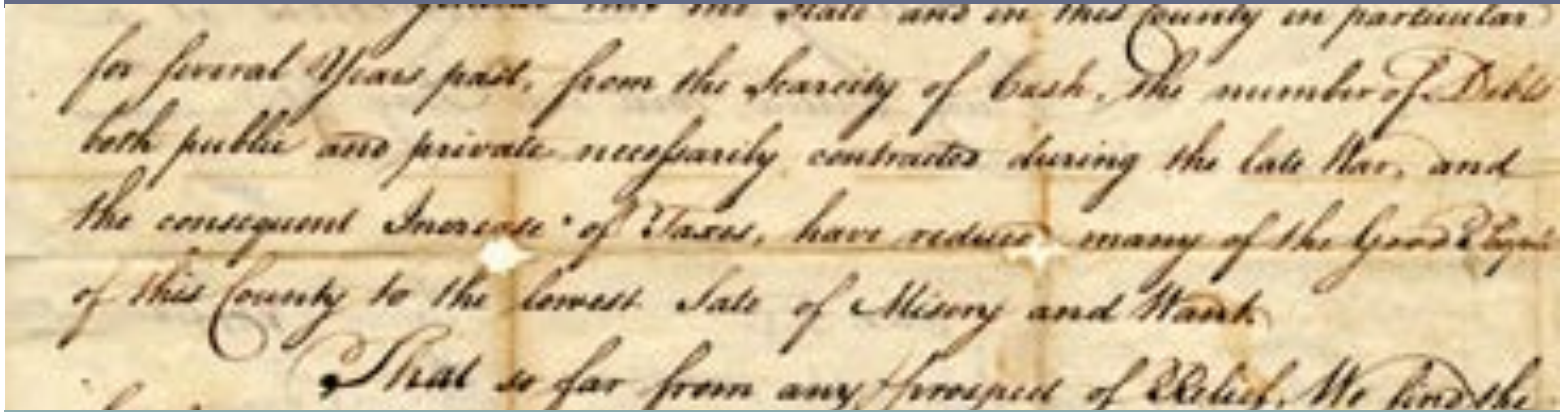 thro' the State and in this County in particular
for several Years past, from the Scarcity of Cash, The number of Debts
both public and private necessarily contracted during the late War, and
the consequent Increase of Taxes, have reduced many of the Good
of this County to the lowest State of Misery and Want.
That so far from any prospect of Relief, We find the